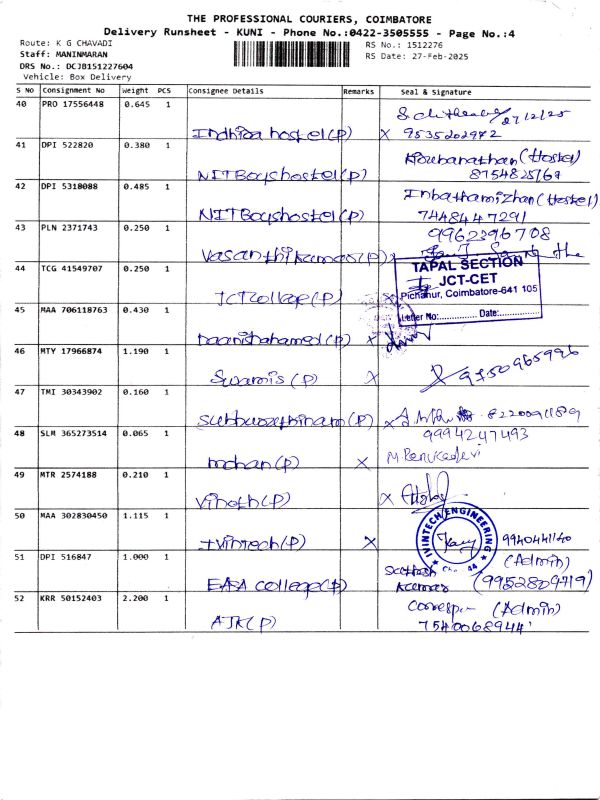 THE PROFESSIONAL COURIERS, COIMBATORE
Delivery Runsheet - KUNI - Phone No.:0422-3505555 - Page No.:4
Route: K G CHAVADI
Staff: MANINMARAN
DRS No.: DCJB151227604
Vehicle: Box Delivery
RS No.: 1512276
RS Date: 27-Feb-2025
S NO Consignment No Weight PCS Consignee Details Remarks Seal & Signature
40 PRO 17556448 0.645 1
27/2/25
Indhiga hostel(P) X 9535202972
41 DPI 522820 0.380 1
(Hostel)
NITBoyshostel(P) 8754825167
42 DPI 5318088 0.485 1
Inbathamizhan (Hostel)
NITBoyshostel(P) 7448447291
43 PLN 2371743 0.250 1
9962396708
Vasanthikumar(P)
44 TCG 41549707 0.250 1
TAPAL SECTION
JCT-CET
Pichanur, Coimbatore-641 105
Letter No:.............. Date:..............
JCTCollege(P)
45 MAA 706118763 0.430 1
Daanishahamed(P) X
46 MTY 17966874 1.190 1
Swamis(P) X 9750965996
47 TMI 30343902 0.160 1
Subburathinam(P) X 8220091189
9994247493
48 SLM 365273514 0.065 1
mohan(P) X M. Renukadevi
49 MTR 2574188 0.210 1
Vinoth(P) X
50 MAA 302830450 1.115 1
IVINTECH ENGINEERING
Ivintech(P) X 9940441140
51 DPI 516847 1.000 1
(Admin)
EASA college(P) Sathish Kumar (9952809719)
52 KRR 50152403 2.200 1
(Admin)
AJK(P) 7540068944